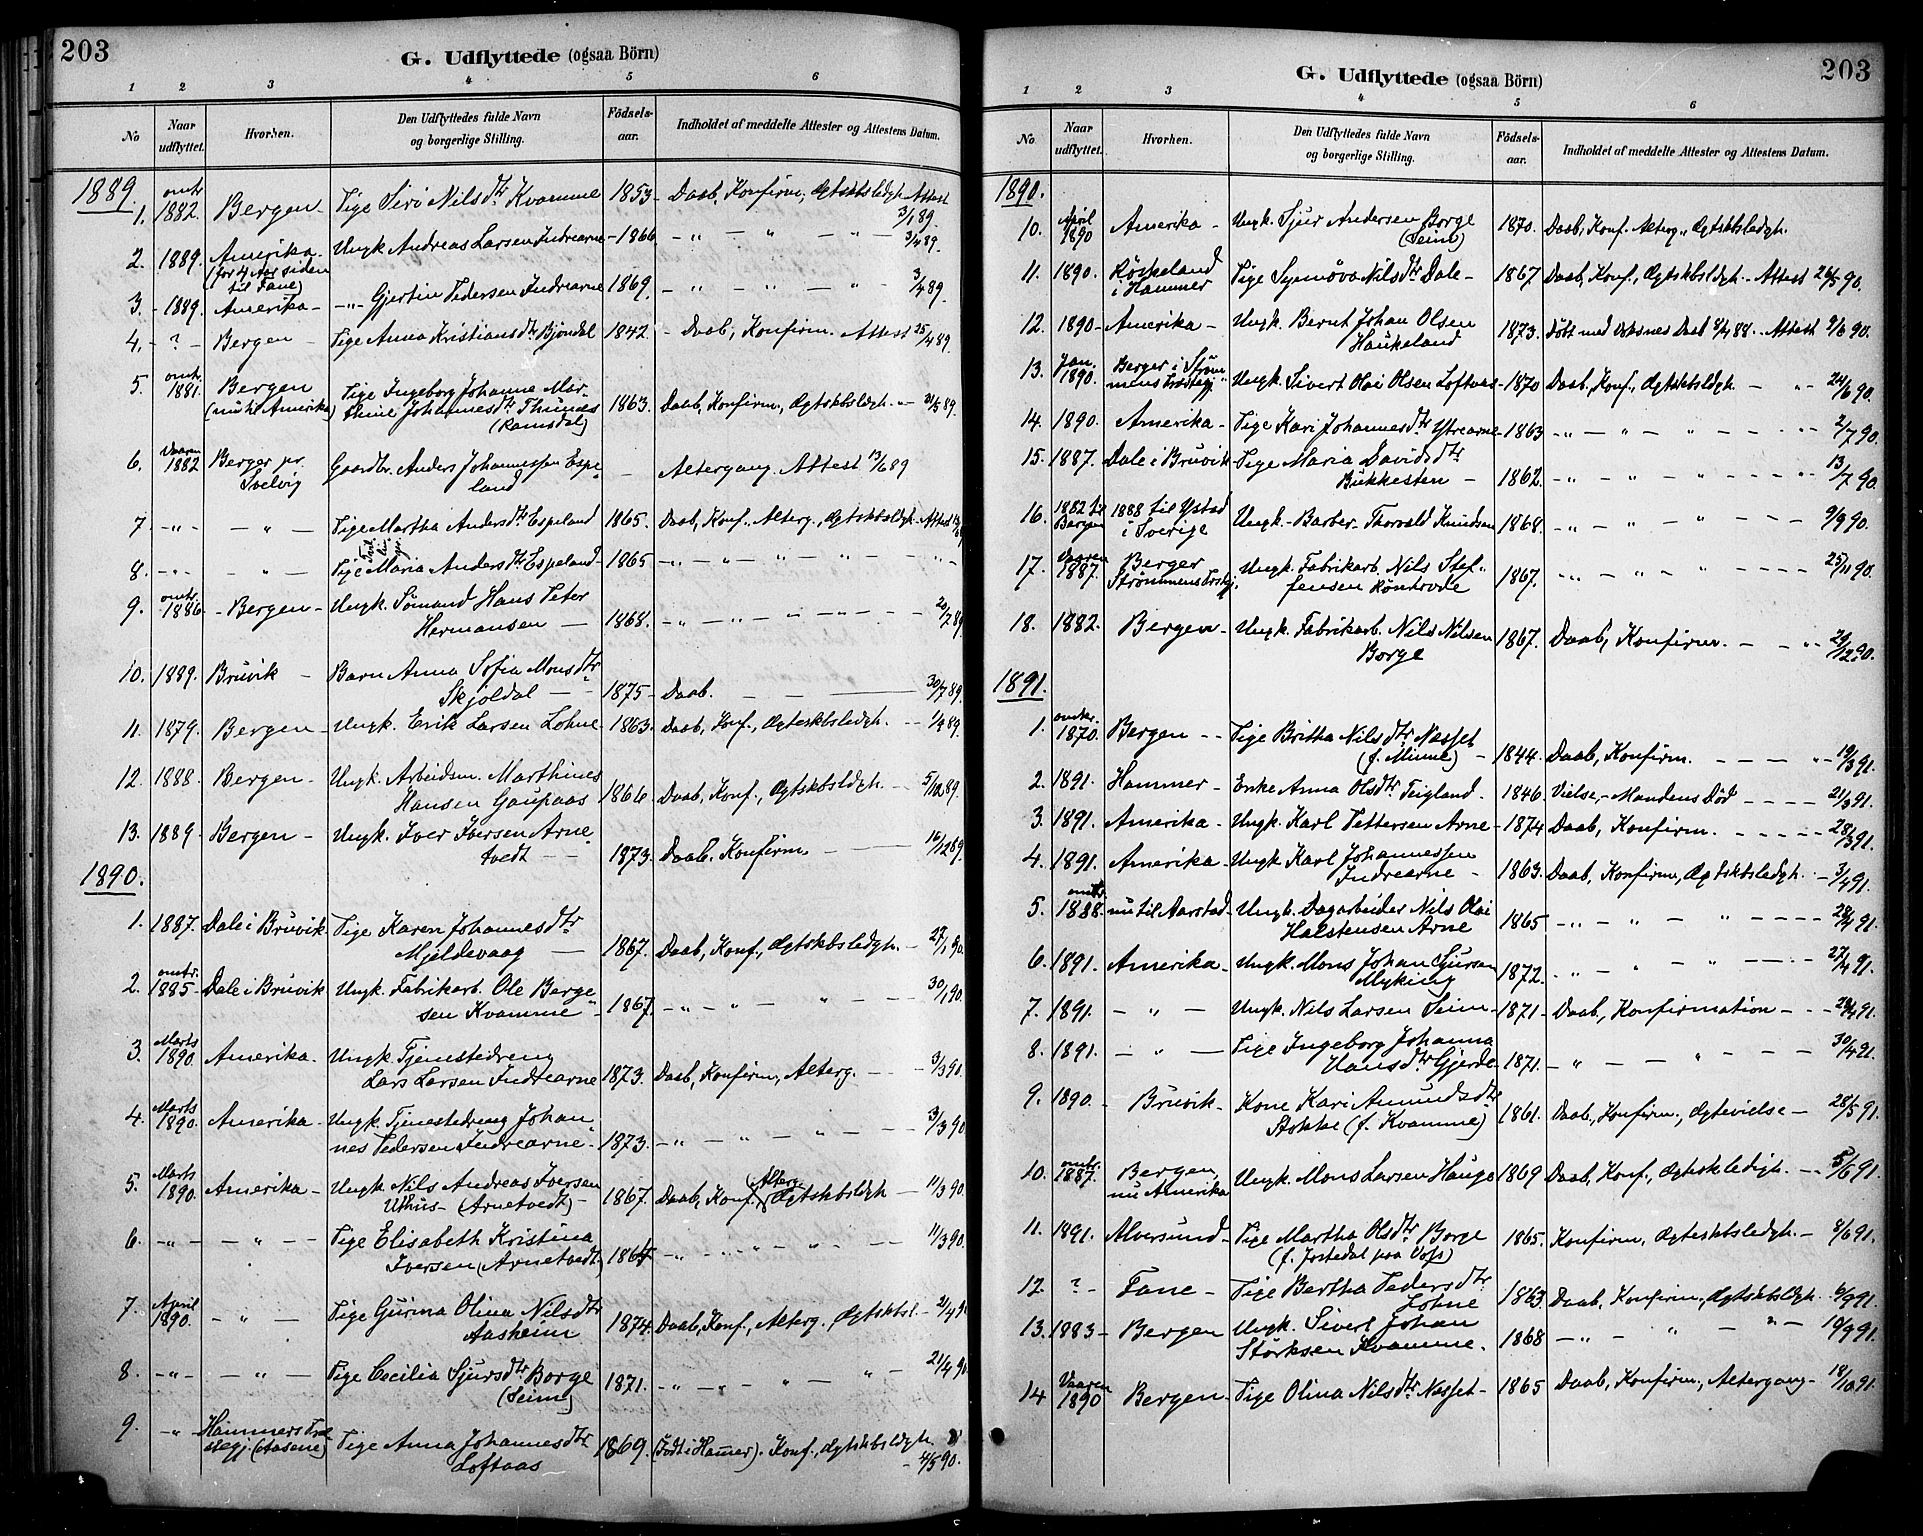 203
G. Udflyttede (ogsaa Börn)
1 2 3 4 5 6
No Naar udflyttet. Hvorhen. Den Udflyttedes fulde Navn og borgerlige Stilling. Födsels-aar. Indholdet af meddelte Attester og Attestens Datum.
1889.
1. omtr 1882. Bergen - Pige Siri Nilsdtr Kvamme 1853 - Daab, Konfirm., Ægtskbsledgh. Attest 3/1 89.
2. 1889. Amerika. (for 4 Aar siden til Fane) Ungk. Andreas Larsen Indrearne - 1866 - " - " - " - 3/4 89.
3. 1889. Amerika - -"- Gjertin Pedersen Indrearne 1869. - " - " - " 3/4 89.
4. - ? - Bergen - Pige Anna Kristiansdtr Bjøndal 1842. - Daab, Konfirm. Attest 25/4 89.
5. omtr 1881. Bergen (nu til Amerika) Pige Ingeborg Johanne Mar-
thine Johannesdtr Thunes (Ramsdal) 1863. Daab, Konfirm., Ægtskbsledgh. - 21/5 89.
6. Vaaren 1882 Berger pr. Svelvig Gaardbr. Anders Johannessen Espe-
land - Altergang. Attest 13/6 89
7. -"- - " - Pige Martha Andersdtr Espeland 1865. Daab, Konf., Alterg., Ægtskbsledgh. Attest
8. -"- - " - Pige Maria Andersdtr Espeland - 1865 - " - " - " - " -
9. omtr. 1886. - Bergen - Ungk. Sømand Hans Peter
Hermansen - 1868. - " - " - " - " - 20/7 89
10. 1889. Bruvik - Barn Anna Sofia Monsdtr
Skjoldal - 1875 - Daab. - 30/7 89.
11. 1879. Bergen - Ungk. Erik Larsen Lohne - 1863. Daab, Konf., Ægteskbsledgh. - 1/9 89.
12. 1888. Bergen - Ungk. Arbeidsm. Marthines
Hansen Gaupaas 1866 Daab, Konf., Ægtskbsledgh. - 5/10 89.
13. 1889. Bergen - Ungk. Iver Iversen Arne-
tvedt - 1873. Daab. Konfirm. - 16/12 89.
1890.
1. 1887. Dale i Bruvik. Pige Karen Johannesdtr
Mjeldevaag - 1867. Daab, Konf., Ægtskbsledgh. - 27/1 90.
2. omtr. 1885 - Dale i Bruvik Ungk. Fabrikarb. Ole Berge-
sen Kvamme - 1867. - " - " - " - 30/1 90.
3. Marts 1890. Amerika. Ungk. Tjenestedreng
Lars Larsen Indrearne 1873. Daab, Konfirm., Alterg. - 3/3 90.
4. Marts 1890. Amerika - Ungk. Tjenestedreng Johan-
nes Pedersen Indrearne. 1873. - " - " - " - 3/3 90
5. Marts 1890. Amerika - Ungk. Nils Andreas Iversen
Uthus - (Arnetvedt) - 1867. Daab, Konf., Alterg. Ægtskbsldgh - 11/3 90.
6. -"- - " - Pige Elisabeth Kristina
Iversen (Arnetvedt) 1864 - " - " - " - 11/3 90.
7. April 1890. - " - Pige Gurina Olina Nilsdtr
Aasheim 1874. Daab, Konf., Alterg. Ægtskbsl. - 2/4 90
8. -"- - " - Pige Cecilia Sjursdtr Borge
(Seim) 1871. - " - " - " - " - 21/4 90.
9. -"- Hammers Præ-
stegj. (Aasene) Pige Anna Johannesdtr
Loftaas 1869. (Født i Hamer). Konf., Ægtskbsledgh. - 4/5 90.
G. Udflyttede (ogsaa Börn)
203
1 2 3 4 5 6
No. Naar udflyttet. Hvorhen. Den Udflyttedes fulde Navn og borgerlige Stilling. Födsels-aar. Indholdet af meddelte Attester og Attestens Datum.
1890.
10. April 1890 Amerika - Ungk. Sjur Andersen Borge
(Seim) 1870. Daab, Konf. Alterg., Ægtskbsledgh.
11. 1890. Röskeland i Hammer Pige Synnöva Nilsdtr Dale - 1867 Daab, Konf., Ægtskbsldgh - Attest 26/5 90.
12. 1890 - Amerika - Ungk. Bernt Johan Olsen
Haukeland 1873. Döbt med Voksnes Daab 8/4 88. Attest 9/6 90.
13. Jan. 1890. Berger i Ström-
mens Præstegj. Ungk. Sivert Olai Olsen Loftaas - 1870 Daab, Konf., Ægtskbsldgh. - " 24/6 90.
14. 1890. Amerika - Pige Kari Johannesdtr Ytrearne - 1863 - " - " - " - 2/7 90.
15. 1887. Dale i Bruvik - Pige Maria Davidsdtr
Bukkesten - 1862. - " - " - " - 13/7 90.
16. 1882 til Bergen 1888 til Ystad i Sverige Ungk. - Barber - Thorvald Knudsen 1868. - " - " - " - 9/9 90.
17. Vaaren 1887. Berger Strømmens Prstgj. Ungk. Fabrikarb. Nils Stef-
fensen Röntrode 1867. - " - " - " - 25/11 90.
18. 1882. Bergen - Ungk. Fabrikarb. Nils Nilsen
Borge 1867. Daab, Konfirm. - - " 29/12 90.
1891.
1. omtr. 1870. Bergen - - Pige Britha Nilsdtr Næsset
(f. Minne) - 1844. Daab, Konfirm. - - - " - 19/3 91.
2. 1891. Hammer - Enke Anna Olsdtr Teigland. - 1846. Vielse, - Mandens Död - - - 21/3 91.
3. 1891. Amerika - Ungk. Karl Pettersen Arne - 1874 Daab, Konfirm. - - - 28/3 91.
4. 1891. Amerika - Ungk. Karl Johannessen
Indrearne - 1863. Daab, Konfirm., Ægtskbsledgh. - 3/4 91.
5. omtr. 1888. nu til Aarstad - Ungk. Dagarbeider Nils Olai
Halstensen Arne 1865 - " - " - " - 28/4 91.
6. 1891. Amerika - Ungk. Mons Johan Sjursen
Myking 1872. - " - " - " - 27/4 91.
7. 1891. - " - Ungk. Nils Larsen Seim - 1871 - Daab, Konfirmation - - 28/4 91.
8. 1891. - " - Pige Ingeborg Johanna
Hansdtr Gjerde 1871. - " - " - 30/4 91.
9. 1890. - Bruvik - Kone Kari Amundsdtr
Stokke (f. Kvamme) 1861. Daab, Konfirm., Ægtevielse - 28/5 91.
10. omtr. 1887. Bergen, nu Amerika Ungk. Mons Larsen Hauge 1869 Daab, Konf., Ægteskledigh. - 5/6 91.
11. 1891. Alversund - Pige Martha Olsdtr Borge
(f. Jostedal paa Voss) 1865. Konfirm., Ægteskbsledgh. - 8/6 91.
12. ? - Fane - Pige Bertha Pedersdtr
Lohne 1863. Daab, Konfirm., Ægtskbsldgh. 6/9 91.
13. 1883 - Bergen Ungk. Sivert Johan
Störksen Kvamme. 1868 - " - " - " - 19/9 91.
14 Vaaren 1890 Bergen - Pige Olina Nilsdtr Næsset - 1865 Daab, Konfirm., Altergang - 18/10 91.